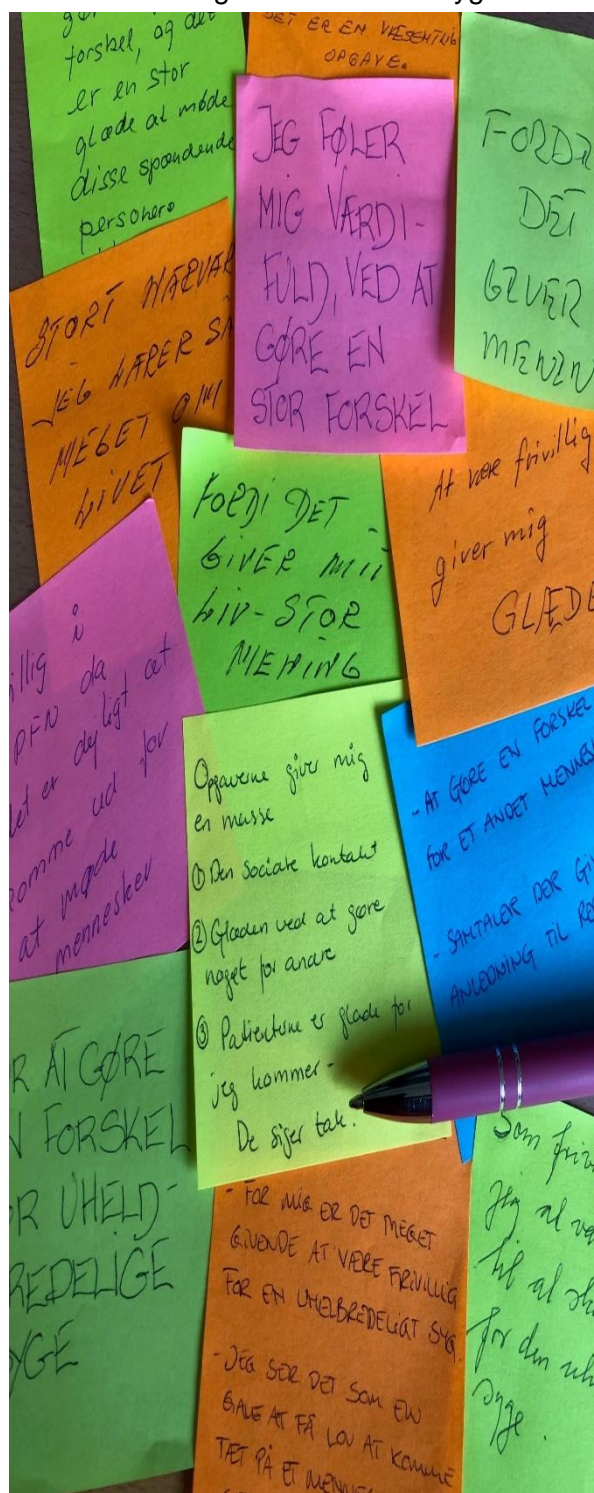 forskel, og det
er en stor
glæde at møde
disse spændende
personer
DET ER EN VÆSENTLIG
OPGAVE.
JEG FØLER
MIG VÆRDI-
FULD, VED AT
GØRE EN
STOR FORSKEL
FORDI
DET
GIVER
MENIN
STORT NÆRVÆR
JEG LÆRER SÅ
MEGET OM
LIVET
FORDI DET
GIVER MIT
LIV-STOR
MENING
At være frivillig
giver mig
GLÆDE
illig i
da
det er dejligt at
komme ud for
at møde
mennesker
Opgaverne giver mig
en masse
① Den sociale kontakt
② Glæden ved at gøre
noget for andre
③ Patienterne er glade for
jeg kommer-
De siger tak.
- AT GØRE EN FORSKEL
FOR ET ANDET MENNES
- SAMTALER DER GIV
ANLEDNING TIL
R AT GØRE
N FORSKEL
OR UHELD-
REDELIGE
YGE
- FOR MIG ER DET MEGET
GIVENDE AT VÆRE FRIVILLIG
FOR EN UHELBREDELIGT SYG.
- JEG SER DET SOM EN
GAVE AT FÅ LOV AT KOMME
TÆT PÅ ET MENNE
Som friv
jeg at væ
til at
for den uh
syge.